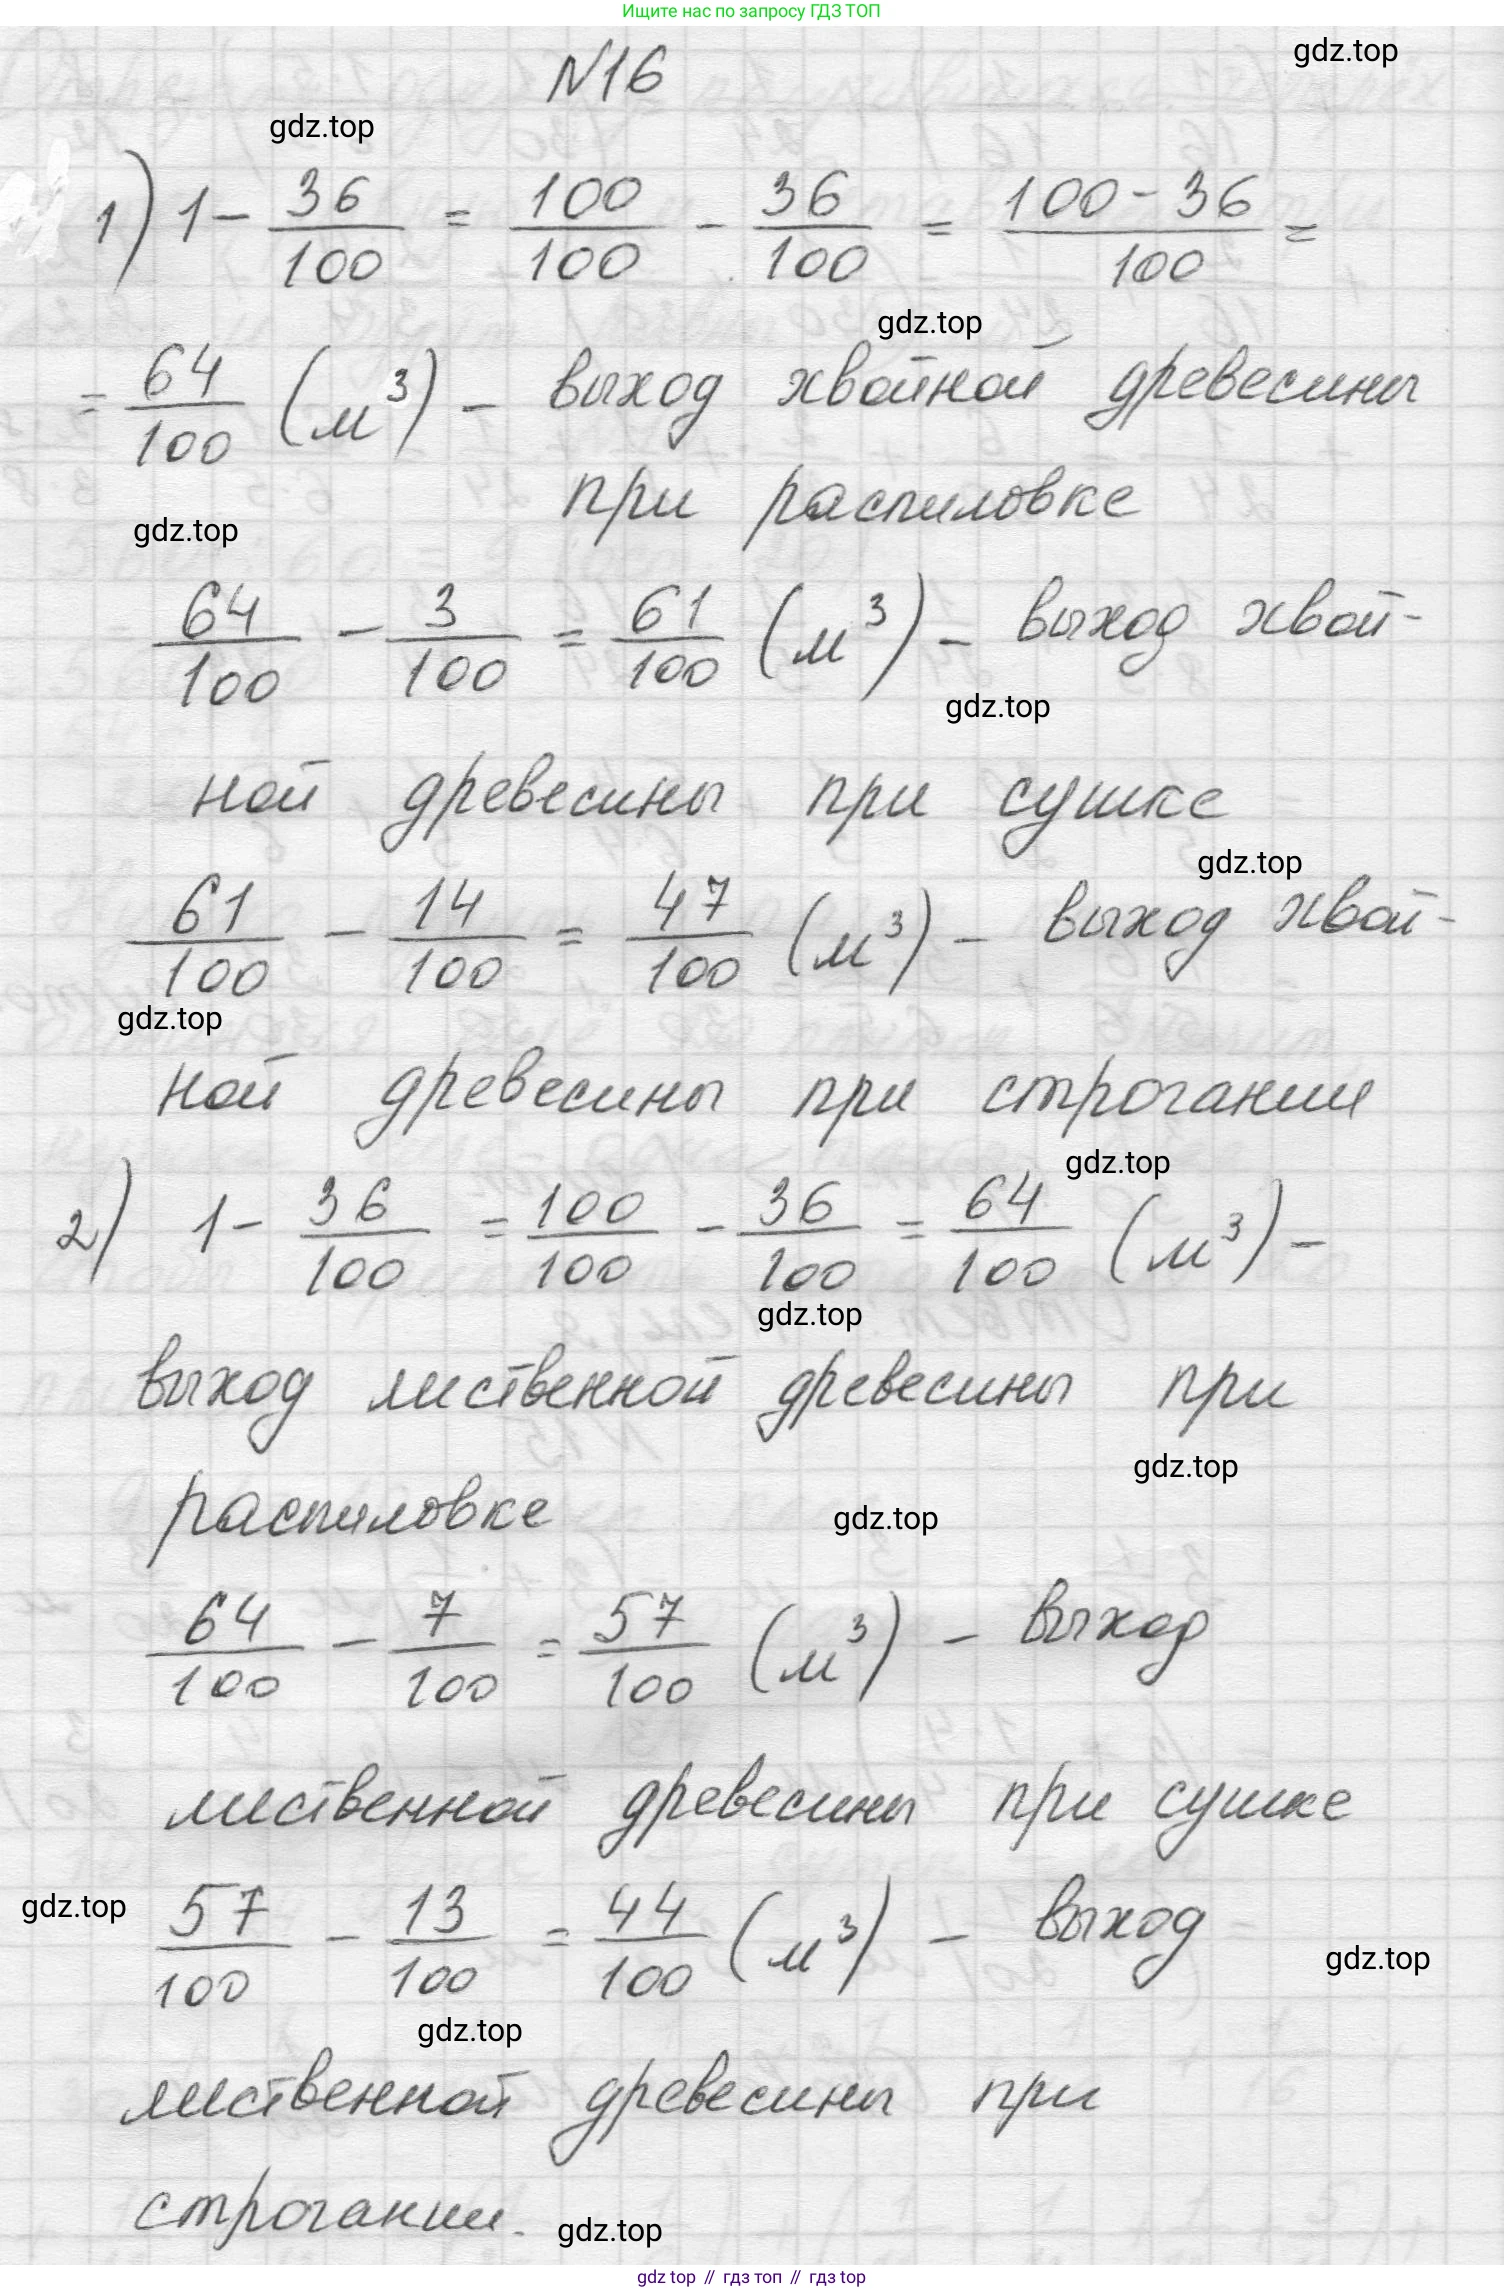 Ищите нас по запросу ГДЗ ТОП
gdz.top
N16
gdz.top
1) 1 - 36/100 = 100/100 - 36/100 = (100 - 36)/100 =
gdz.top
= 64/100 (м³) - выход хвойной древесины
при распиловке
gdz.top
64/100 - 3/100 = 61/100 (м³) - выход хвой-
gdz.top
ной древесины при сушке
gdz.top
61/100 - 14/100 = 47/100 (м³) - выход хвой-
gdz.top
ной древесины при строгании
gdz.top
2) 1 - 36/100 = 100/100 - 36/100 = 64/100 (м³) -
gdz.top
выход лиственной древесины при
gdz.top
распиловке
gdz.top
64/100 - 7/100 = 57/100 (м³) - выход
лиственной древесины при сушке
gdz.top
57/100 - 13/100 = 44/100 (м³) - выход
gdz.top
gdz.top
лиственной древесины при
строгании.
gdz.top
gdz top // гдз топ // гдз top